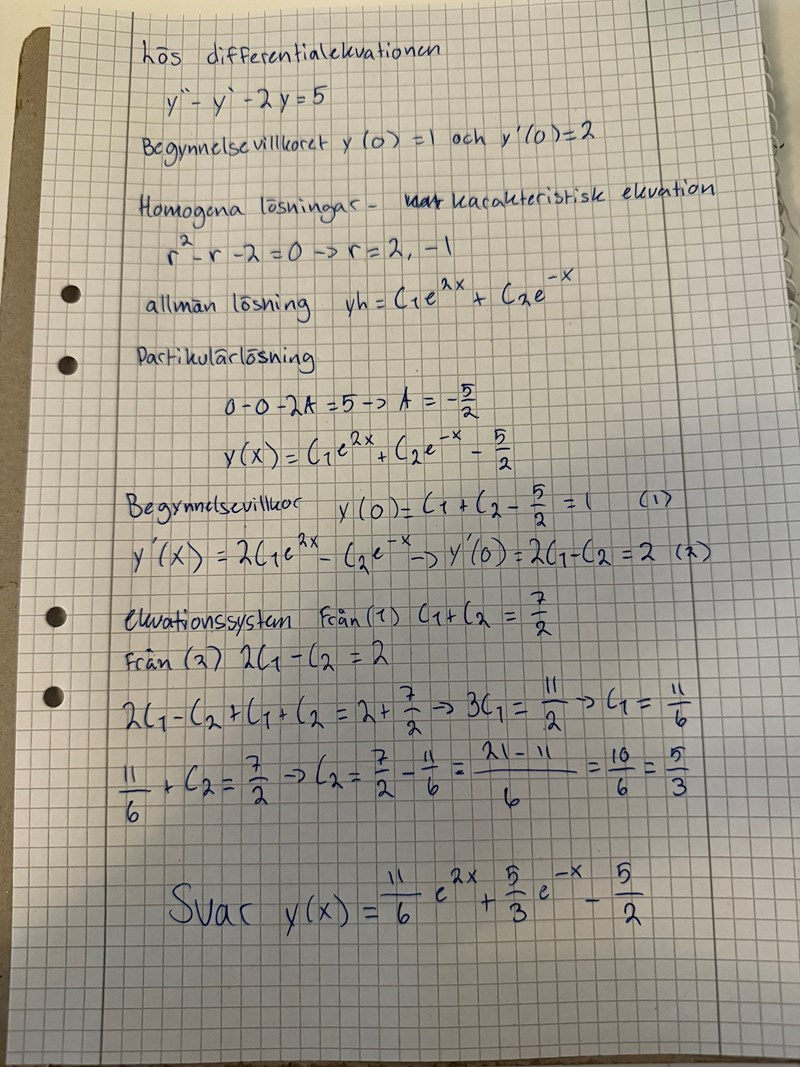 Lös differentialekvationen
y'' - y' - 2y = 5
Begynnelsevillkoret y(0) = 1 och y'(0) = 2
Homogena lösningar - karakteristisk ekvation
r² - r - 2 = 0 → r = 2, -1
allmän lösning yh = C₁e^{2x} + C₂e^{-x}
Partikulärlösning
0 - 0 - 2A = 5 → A = -5/2
y(x) = C₁e^{2x} + C₂e^{-x} - 5/2
Begynnelsevillkor y(0) = C₁ + C₂ - 5/2 = 1 (1)
y'(x) = 2C₁e^{2x} - C₂e^{-x} → y'(0) = 2C₁ - C₂ = 2 (2)
ekvationssystem Från (1) C₁ + C₂ = 7/2
Från (2) 2C₁ - C₂ = 2
2C₁ - C₂ + C₁ + C₂ = 2 + 7/2 → 3C₁ = 11/2 → C₁ = 11/6
11/6 + C₂ = 7/2 → C₂ = 7/2 - 11/6 = (21 - 11)/6 = 10/6 = 5/3
Svar y(x) = 11/6 e^{2x} + 5/3 e^{-x} - 5/2